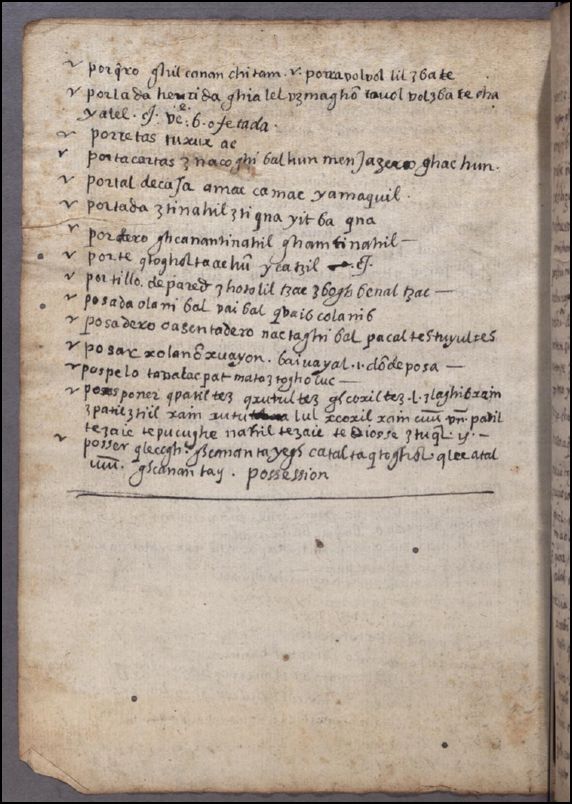 v porq̃ro ghil canan chitam. v. porravolvol lil zbate
v porlada herida ghia lel vzmaghõ tavol volzbate cha
yalel. cſ. ve. 6. ofetada.
v porretas tuxux ac
v portacartas znacoghi bal hun men Jazeco ghac hun.
v portal de caſa amac camac yamaquil.
v portada ztinahil zti qna yit ba qna
v portero ghcanantinahil ghamtinahil —
v porte qtoghol taachũ ycatzil cſ.
v portillo. de pared zhotolil tzac zbogh benal tzac —
v posada olani bal vai bal qvaib colanib
v posadero o asentadero nactaghi bal pacal tes tuyul tes
v posar xolanõ xvayon. baivayal. l. dõde posa —
v pospelo tavalacpat mataztogholuc —
v posponer qpatil tez qxutul tez ghcoxil tez. l. zlaghibxam
zpatil zhil xam xutu lul xcoxil xam vñ patil
tezaic tepucughe nahil tezaic te Diosse ztuql y. —
v posser qlecogh. ghcanan tayegh catal taqtoghol qlecatal
ghcanan tay. possession